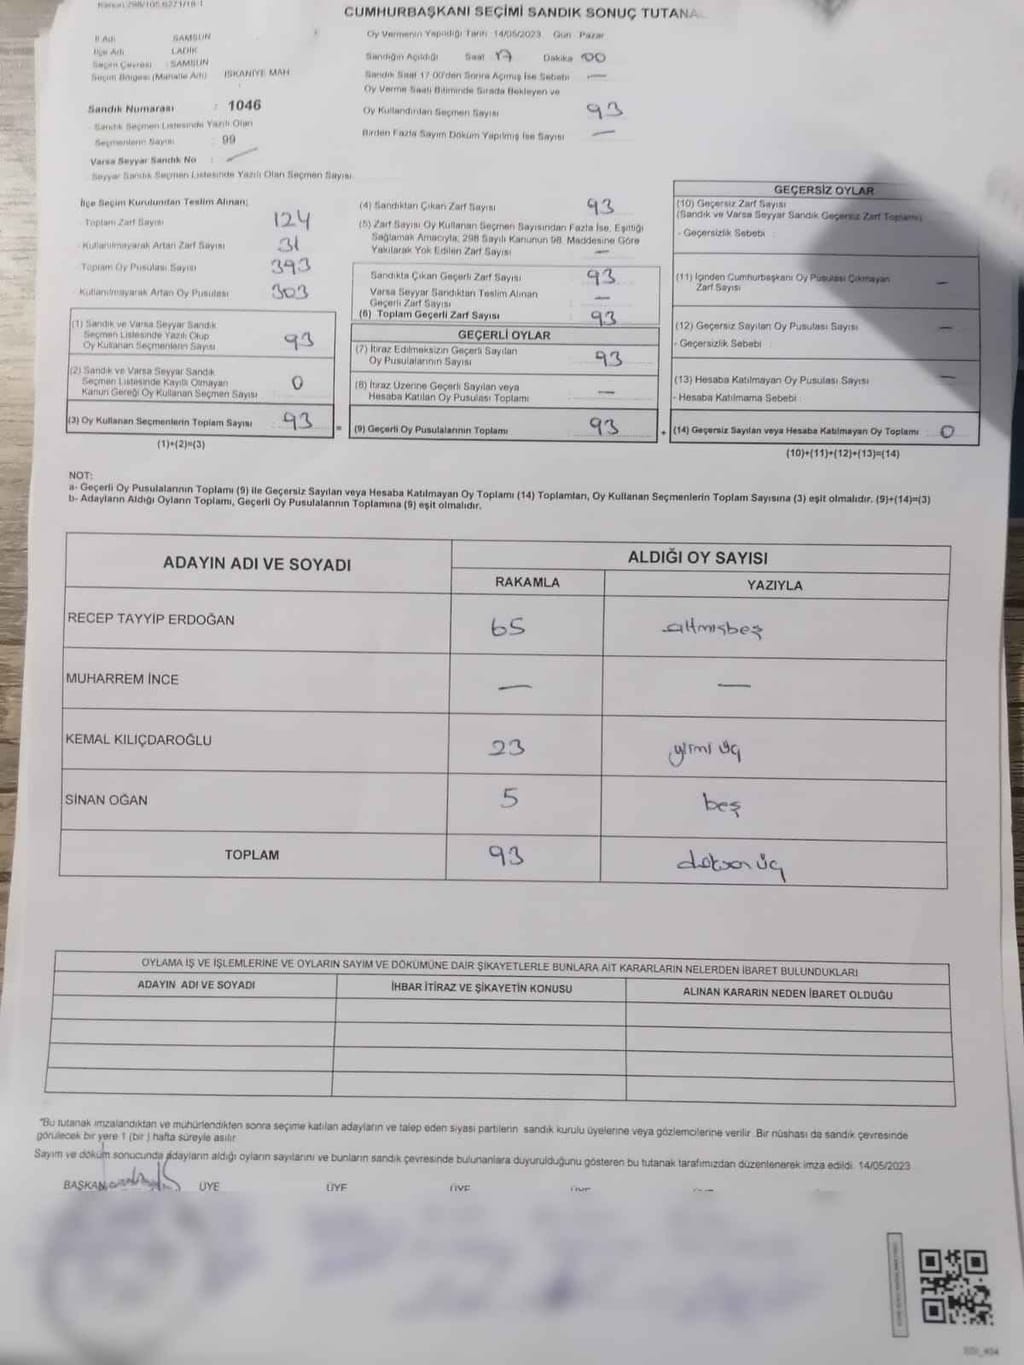 CUMHURBAŞKANI SEÇİMİ SANDIK SONUÇ TUTANA
İl Adı : SAMSUN
İlçe Adı : LADİK
Seçim Çevresi : SAMSUN
Seçim Bölgesi (Mahalle Adı) : İSKANİYE MAH
Sandık Numarası : 1046
Sandık Seçmen Listesinde Yazılı Olan
Seçmenlerin Sayısı : 99
Varsa Seyyar Sandık No : —
Seyyar Sandık Seçmen Listesinde Yazılı Olan Seçmen Sayısı
Oy Vermenin Yapıldığı Tarih 14/05/2023 Gün Pazar
Sandığın Açıldığı Saat 17 Dakika 00
Sandık Saat 17 00'den Sonra Açmış İse Sebebi —
Oy Verme Saati Bitiminde Sırada Bekleyen ve
Oy Kullandırılan Seçmen Sayısı 93
Birden Fazla Sayım Döküm Yapılmış İse Sayısı —
İlçe Seçim Kurulundan Teslim Alınan;
Toplam Zarf Sayısı 124
- Kullanılmayarak Artan Zarf Sayısı 31
- Toplam Oy Pusulası Sayısı 393
- Kullanılmayarak Artan Oy Pusulası 303
(1) Sandık ve Varsa Seyyar Sandık
Seçmen Listesinde Yazılı Olup
Oy Kullanan Seçmenlerin Sayısı 93
(2) Sandık ve Varsa Seyyar Sandık
Seçmen Listesinde Kayıtlı Olmayan
Kanun Gereği Oy Kullanan Seçmen Sayısı 0
(3) Oy Kullanan Seçmenlerin Toplam Sayısı 93 =
(1)+(2)=(3)
(4) Sandıktan Çıkan Zarf Sayısı 93
(5) Zarf Sayısı Oy Kullanan Seçmen Sayısından Fazla İse, Eşitliği
Sağlamak Amacıyla; 298 Sayılı Kanunun 98. Maddesine Göre
Yakılarak Yok Edilen Zarf Sayısı —
Sandıkta Çıkan Geçerli Zarf Sayısı 93
Varsa Seyyar Sandıktan Teslim Alınan
Geçerli Zarf Sayısı —
(6) Toplam Geçerli Zarf Sayısı 93
GEÇERLİ OYLAR
(7) İtiraz Edilmeksizin Geçerli Sayılan
Oy Pusulalarının Sayısı 93
(8) İtiraz Üzerine Geçerli Sayılan veya
Hesaba Katılan Oy Pusulası Toplamı —
(9) Geçerli Oy Pusulalarının Toplamı 93 +
GEÇERSİZ OYLAR
(10) Geçersiz Zarf Sayısı
(Sandık ve Varsa Seyyar Sandık Geçersiz Zarf Toplamı)
- Geçersizlik Sebebi :
(11) İçinden Cumhurbaşkanı Oy Pusulası Çıkmayan
Zarf Sayısı —
(12) Geçersiz Sayılan Oy Pusulası Sayısı —
- Geçersizlik Sebebi :
(13) Hesaba Katılmayan Oy Pusulası Sayısı —
- Hesaba Katılmama Sebebi :
(14) Geçersiz Sayılan veya Hesaba Katılmayan Oy Toplamı 0
(10)+(11)+(12)+(13)=(14)
NOT:
a- Geçerli Oy Pusulalarının Toplamı (9) ile Geçersiz Sayılan veya Hesaba Katılmayan Oy Toplamı (14) Toplamları, Oy Kullanan Seçmenlerin Toplam Sayısına (3) eşit olmalıdır. (9)+(14)=(3)
b- Adayların Aldığı Oyların Toplamı, Geçerli Oy Pusulalarının Toplamına (9) eşit olmalıdır.
ADAYIN ADI VE SOYADI
ALDIĞI OY SAYISI
RAKAMLA YAZIYLA
RECEP TAYYİP ERDOĞAN 65 altmışbeş
MUHARREM İNCE — —
KEMAL KILIÇDAROĞLU 23 yirmi üç
SİNAN OĞAN 5 beş
TOPLAM 93 doksan üç
OYLAMA İŞ VE İŞLEMLERİNE VE OYLARIN SAYIM VE DÖKÜMÜNE DAİR ŞİKAYETLERLE BUNLARA AİT KARARLARIN NELERDEN İBARET BULUNDUKLARI
ADAYIN ADI VE SOYADI İHBAR İTİRAZ VE ŞİKAYETİN KONUSU ALINAN KARARIN NEDEN İBARET OLDUĞU
"Bu tutanak imzalandıktan ve mühürlendikten sonra seçime katılan adayların ve talep eden siyasi partilerin sandık kurulu üyelerine veya gözlemcilerine verilir. Bir nüshası da sandık çevresinde
görülecek bir yere 1 (bir ) hafta süreyle asılır.
Sayım ve döküm sonucunda adayların aldığı oyların sayılarını ve bunların sandık çevresinde bulunanlara duyurulduğunu gösteren bu tutanak tarafımızdan düzenlenerek imza edildi. 14/05/2023
BAŞKAN ÜYE ÜYE ÜYE